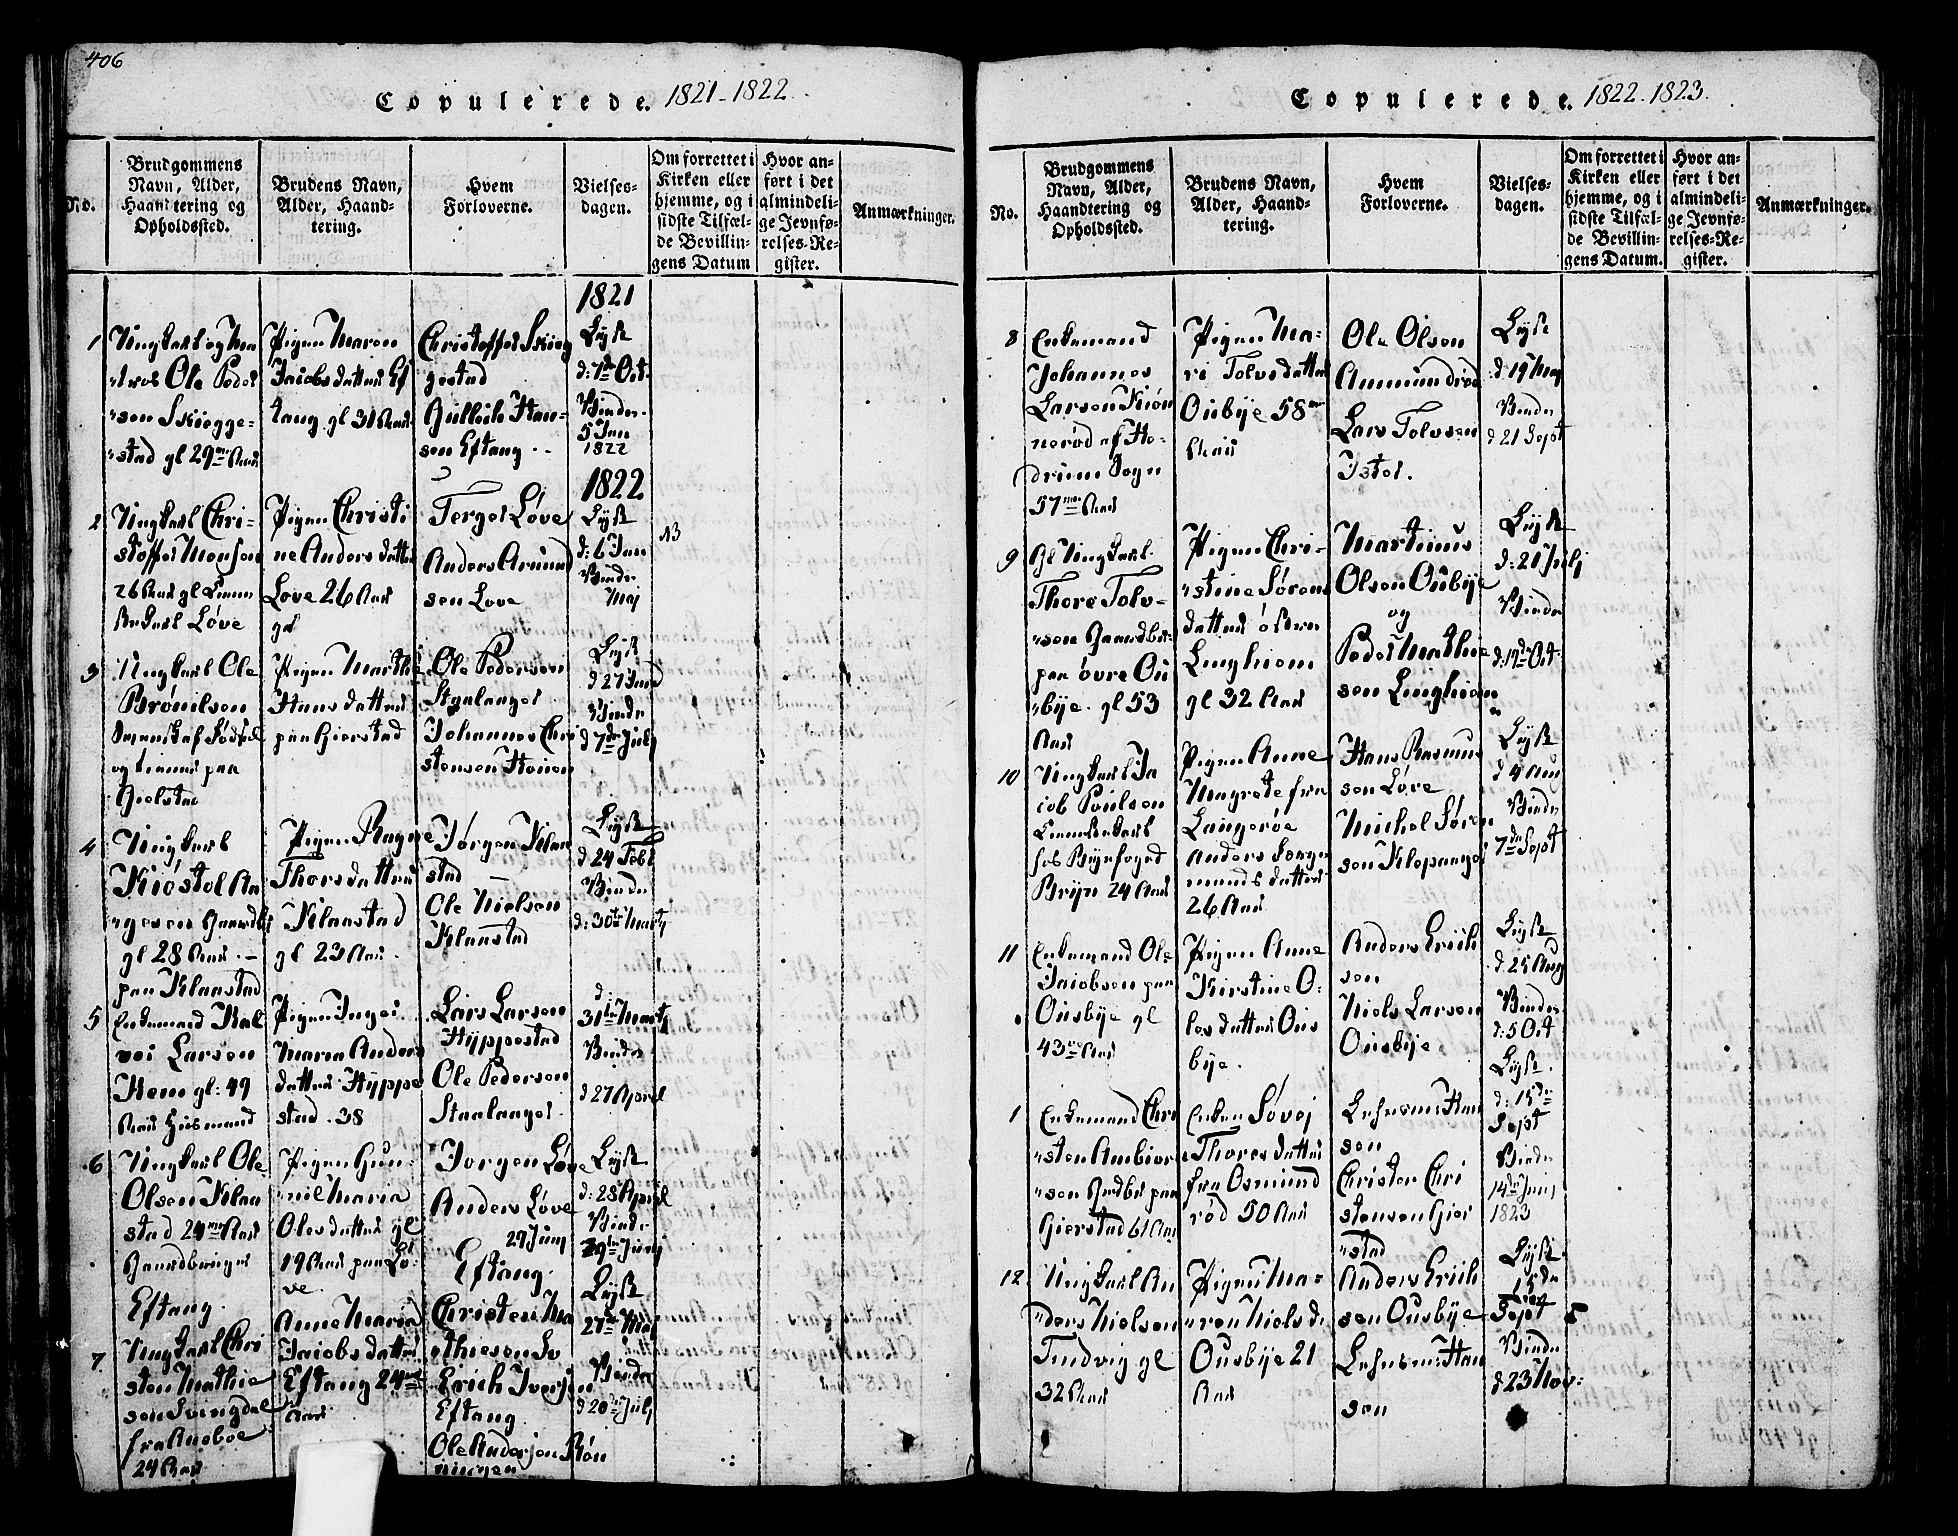 406
Copulerede. 1821-1822
No.
Brudgommens
Navn, Alder,
Haandtering og
Opholdssted.
Brudens Navn,
Alder, Haand-
tering.
Hvem
Forloverne.
Vielses-
dagen.
Om forrettet i
Kirken eller
hjemme, og i
sidste Tilfæl-
de Bevillin-
gens Datum
Hvor an-
ført i det
almindeli-
ge Jevnfø-
relses-Re-
gister.
Anmærkninger.
1
Ungkarl og Ma
tros Ole Peder
sen Skiægge-
stad gl 29 Aar
Pigen Maren
Jacobsdatter Ef
tang gl 31 Aar
Christoffer Skieg
gestad
Gulleik Han-
sen Eftang
1821
Lyst
d: 7de Oct.
Viede
5 Jan
1822
2
Ungkarl Chri-
stoffer Monsen
26 Aar gl
Løve
Pigen Christi
ne Andersdatter
Løve 26 Aar
gl
Terger Løve
Anders Amund
sen Løve
1822
Lyst
d: 6 Jan
Viede
Maj
13
3
Ungkarl Ole
Brønilsen
Svensk af Fødsel
og tienner paa
Gielstad
Pigen Marthe
Hansdatter
paa Gierstad
Ole Pedersen
Staalanger
Johannes Chri
stensen Hauen
Lyst
d 27 Jan
Viede
d 7de July
4
Ungkarl
Kiøstol Aa
gesen Gaardbr
gl 28 Aar
paa Klaastad
Pigen Ragne
Thorsdatter
Klaastad
gl 23 Aar
Jørgen Klaa
stad
Ole Nielsen
Klaastad
Lyst
d 24 Feb
Viede
d: 30te Marty
5
Enkemand Hal
vor Larsen
Hem gl: 49
Aar Huusmand
Pigen Inger
Maria Anders
datter Hyppe
stad 38
Lars Larsen
Hyppestad
Ole Pedersen
Staalanger
d:
31te Marty
Viede
d 27 April
6
Ungkarl Ole
Olsen Klaa
stad 24 Aar
Gaardbruger
Eftang.
Pigen Gun-
nil Maria
Olesdatter gl
19 Aar paa Lø-
ve
Jorgen Løve
Anders Løve
29 Juny
Eftang.
Lyst
d: 28 April
Viede
29te Juny
7
Ungkarl Chri
sten Mathie
sen Svingdal
fra Aasboe
24 Aar
Anne Maria
Jacobsdatter
Eftang 24
Aar
Christen Ma
thiesen Sv
Erich Iversen
Eftang
Ole Andersen Røn
ningen
Lyst
27de Maj
Viede
d 20de July
Copulerede. 1822-1823.
No.
Brudgommens
Navn, Alder,
Haandtering og
Opholdssted.
Brudens Navn,
Alder, Haand-
tering.
Hvem
Forloverne.
Vielses-
dagen.
Om forrettet i
Kirken eller
hjemme, og i
sidste Tilfæl-
de Bevillin-
gens Datum.
Hvor an-
ført i det
almindeli-
ge Jevnfø-
relses-Re-
gister.
Anmærkninger.
8
Enkemand
Johannes
Larsen Kiøn
nerød af He-
drum Sogn
57 Aar
Pigen Ma-
ri Tolvsdatter
Oubye 58
Aar
Ole Olsen
Ammundrød
Lars Tolvsen
Istei.
Lyst
d 19 Maj
Viede
d 21 Sept
9
Gl Ungkarl
Thore Tolv-
sen Gaardbr-
paa øvre Ou
bye gl 53
Aar
Pigen Chri-
stine Sørens
datter østre
Linghiem
gl 32 Aar
Martinus
Olsen Oubye
og
Peder Mathie
sen Linghiem
Lyst
d: 21 July
Viede
d: 12te Oct
10
Ungkarl Ja
cob Poulsen
hos Byefoged
Bryn 24 Aar
Pigen Anne
Magrete fra
Langerøe
Anders
datter
26 Aar
Hans Rasmus
sen Løve
Michel Søren
sen Klopanger
Lyst
d 4 Aug
Viede
7de Sept
11
Enkemand Ole
Jacobsen paa
Ousbye gl
43 Aar
Pigen Anne
Kirstine O-
lesdatter Ous
bye.
Anders Erich
sen
Niels Larsen
Ousbye
Lyst
d. 25 Aug
Viede
d: 5 Oct
1
Enkemand Chri
sten Ambior
sen Gaardbr paa
Gierstad 61 Aar
Enken Søvej
Thoresdatter
fra Osmund
rød 50 Aar
Lehnsm: Han
sen
Christen Chri
stensen Gier
stad
Lyst.
d: 15de
Sept
Viede
14de Juny
1823
12
Ungkarl An
ders Nielsen
Tindvig gl
32 Aar
Pigen Ma-
ren Niels d.
Ousbye 21
Aar
Anders Erich
sen Ousbye
Lehnsm: Han
sen
Lyst.
15de
Sept
Viede
d 23 Nov: